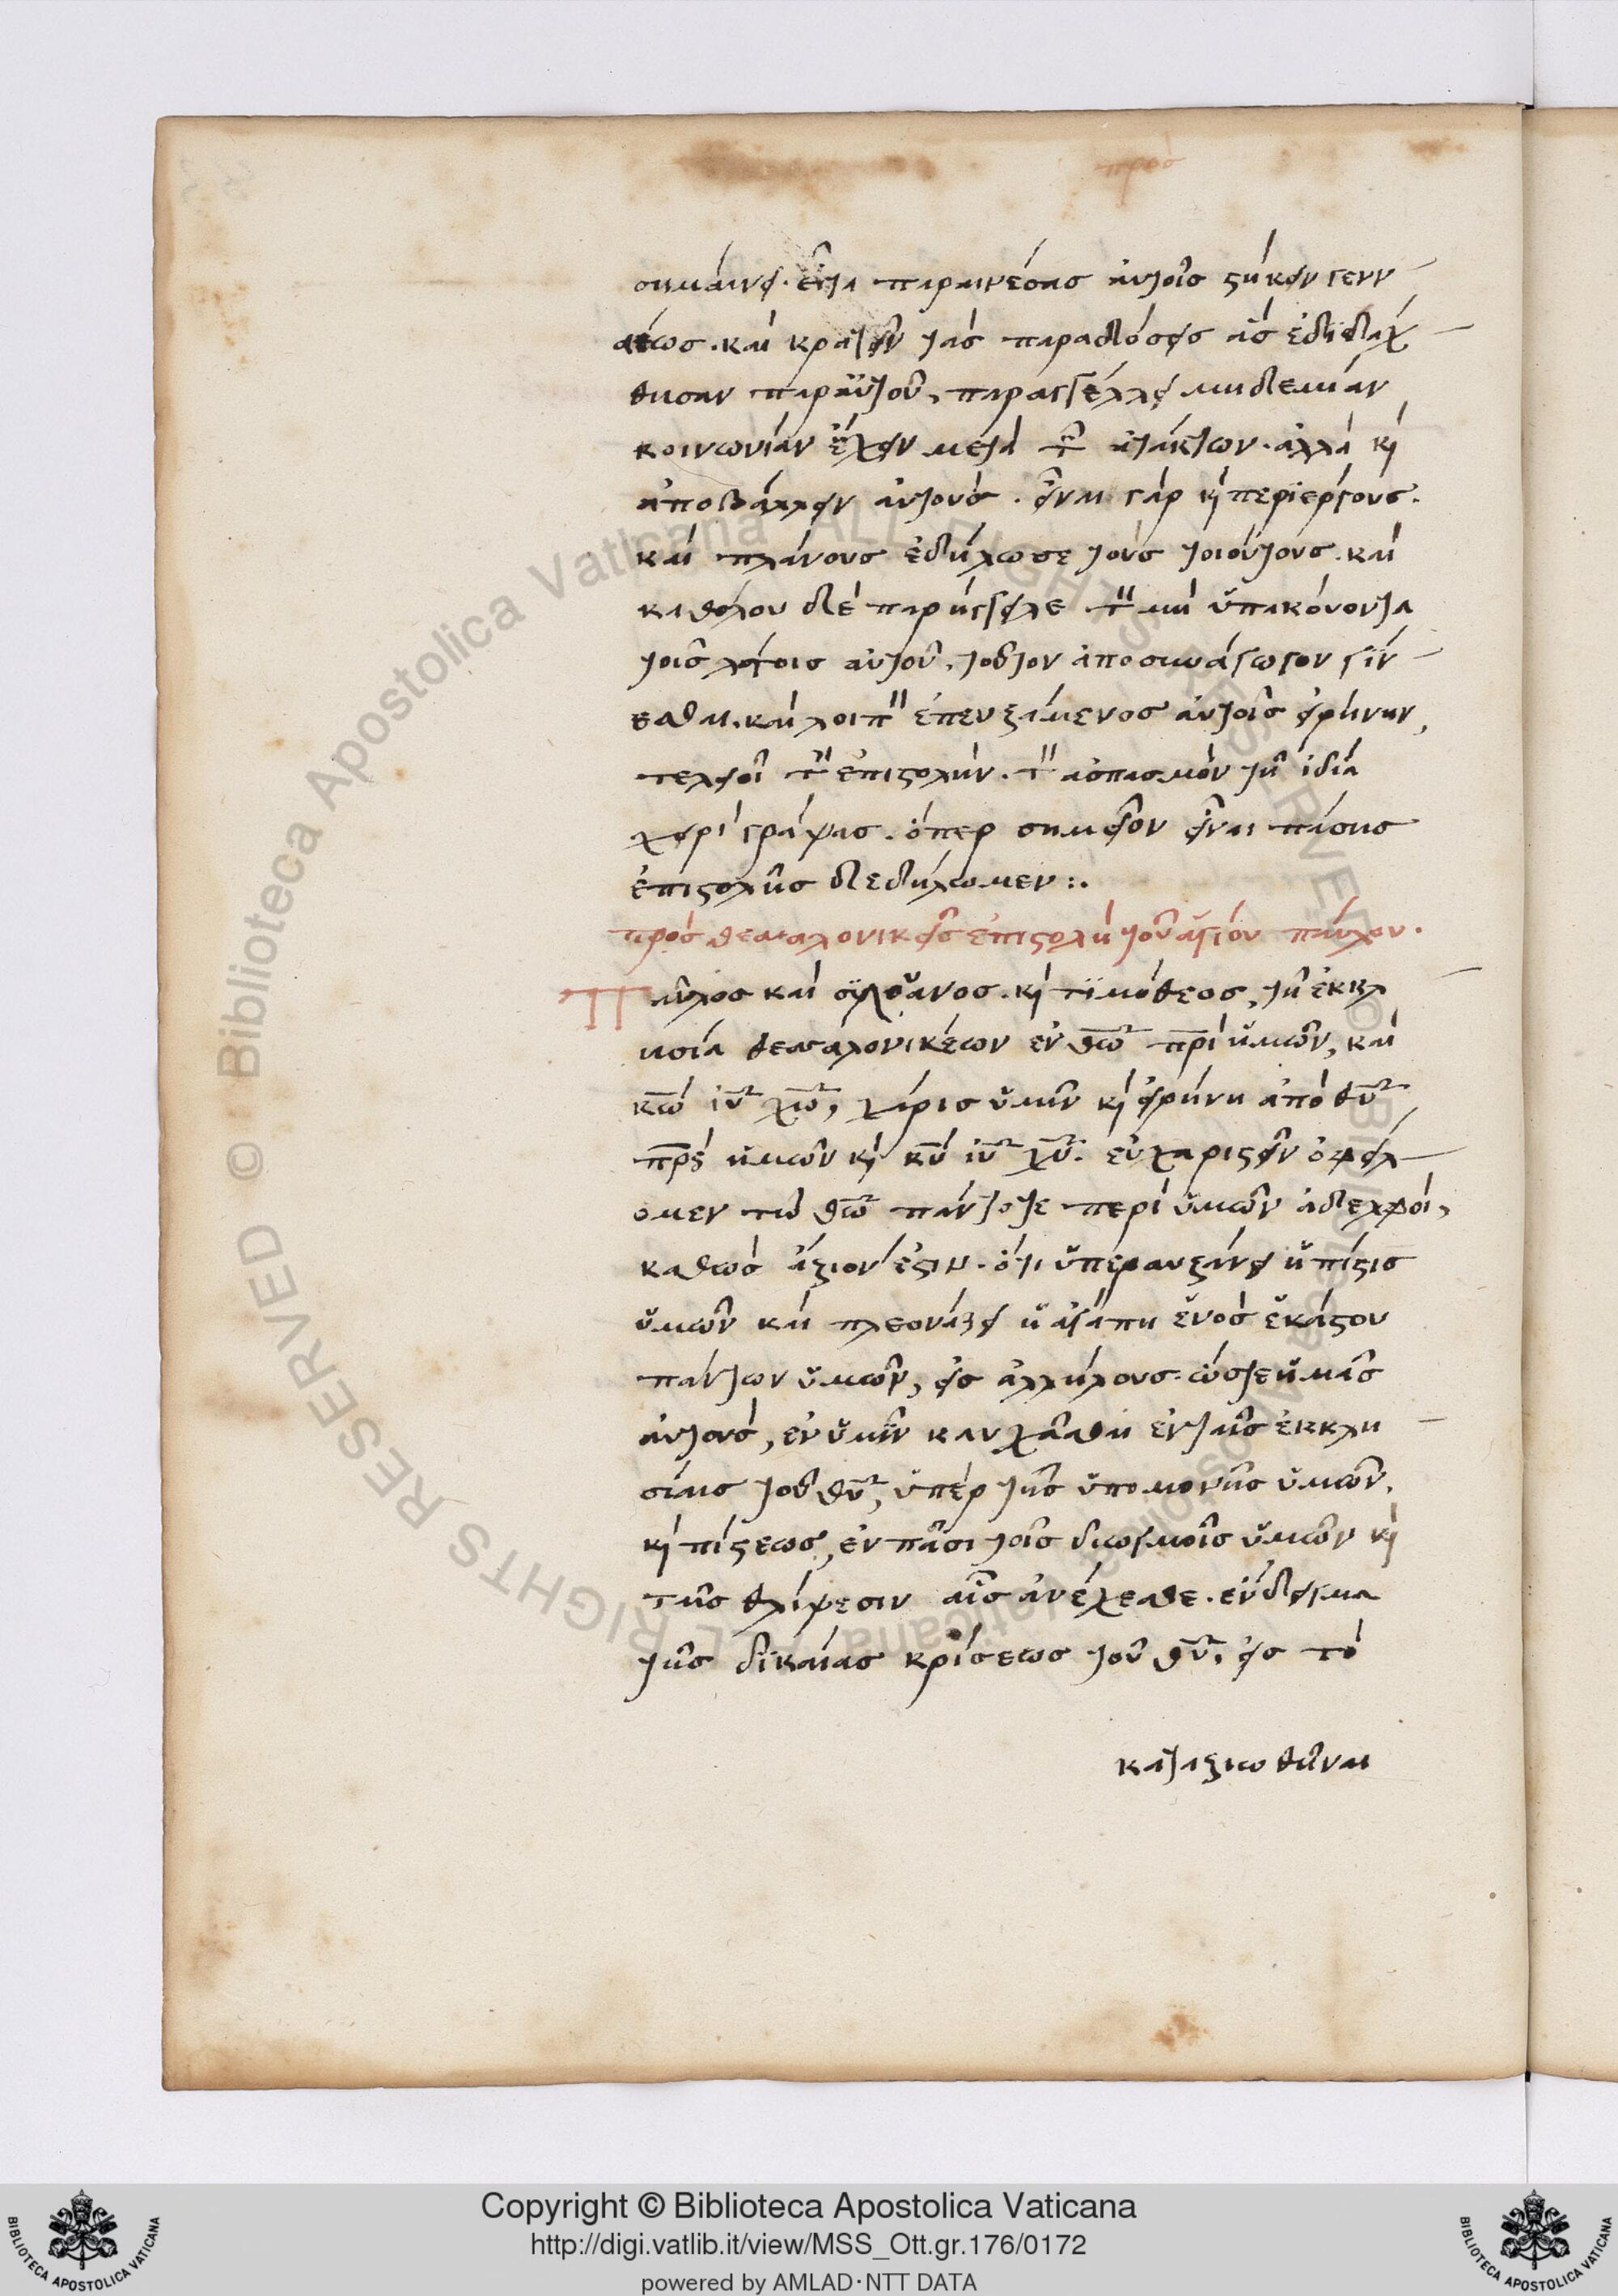 πρὸς
σημαίνει. εἶτα παραινέσας αὐτοῖς στήκειν γενν
αίως. καὶ κρατεῖν τὰς παραδόσεις ἃς ἐδιδάχ
θησαν παρ' αὐτοῦ, παραγγέλλει μηδεμίαν
κοινωνίαν ἔχειν μετὰ τῶν ἀτάκτων. ἀλλὰ κὶ
ἀποβάλλειν αὐτοὺς. εἶναι γὰρ κὶ περιέργους.
καὶ πλάνους ἐδήλωσε τοὺς τοιούτους. καὶ
καθόλου δὲ παρήγγειλε τὸν μὴ ὑπακούοντα
τοῖς λόγοις αὐτοῦ, τοῦτον ἀποσυνάγωγον γίν
εσθαι. καὶ λοιπὸν ἐπευξάμενος αὐτοῖς εἰρήνην,
τελειοῖ τὴν ἐπιστολήν. τὸν ἀσπασμὸν τῇ ἰδίᾳ
χειρὶ γράψας. ὅπερ σημεῖον εἶναι πάσης
ἐπιστολῆς δεδήλωμεν:.
πρὸς θεσσαλονικεῖς ἐπιστολὴ τοῦ ἁγίου παύλου.
Παῦλος καὶ σϊλουανος. κὶ τϊμόθεος, τῇ ἐκκλ
ησία θεσσαλονικέων ἐν θῶ πρὶ ἡμῶν, καὶ
κῶ ἰῦ χῶ, χάρις ὑμῖν κὶ εἰρήνη ἀπὸ θῦ
πρς ἡμῶν κὶ κῦ ἰῦ χῦ. εὐχαριστεῖν ὀφείλ
ομεν τῶ θῶ πάντοτε περὶ ὑμῶν ἀδελφοὶ,
καθὼς ἄξιον ἐστιν. ὅτι ὑπεραυξάνει ἡ πίστις
ὑμῶν καὶ πλεονάζει ἡ ἀγάπη ἑνὸς ἑκάστου
πάντων ὑμῶν, εἰς ἀλλήλους. ὥστε ἡμᾶς
αὐτοὺς, ἐν ὑμῖν καυχᾶσθαι ἐν ταῖς ἐκκλη
σίαις τοῦ θῦ, ὑπὲρ τῆς ὑπομονῆς ὑμῶν,
κὶ πίστεως, ἐν πᾶσι τοῖς διωγμοῖς ὑμῶν κὶ
ταῖς θλίψεσιν αἷς ἀνέχεσθε. ἔνδειγμα
τῆς δικαίας κρίσεως τοῦ θῦ, εἰς τὸ
καταξιωθῆναι
Copyright © Biblioteca Apostolica Vaticana
http://digi.vatlib.it/view/MSS_Ott.gr.176/0172
powered by AMLAD·NTT DATA